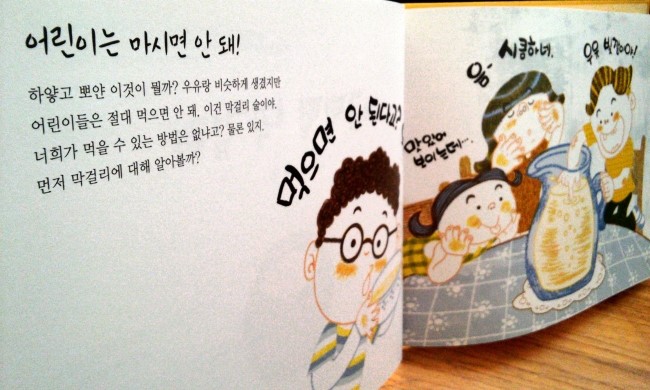 어린이는 마시면 안 돼!
하얗고 뽀얀 이것이 뭘까? 우유랑 비슷하게 생겼지만
어린이들은 절대 먹으면 안 돼. 이건 막걸리 술이야.
너희가 먹을 수 있는 방법은 없냐고? 물론 있지.
먼저 막걸리에 대해 알아볼까?
먹으면 안 된다고?
음~ 시큼하네.
우유 빛깔이야!
맛있어
보이는데….